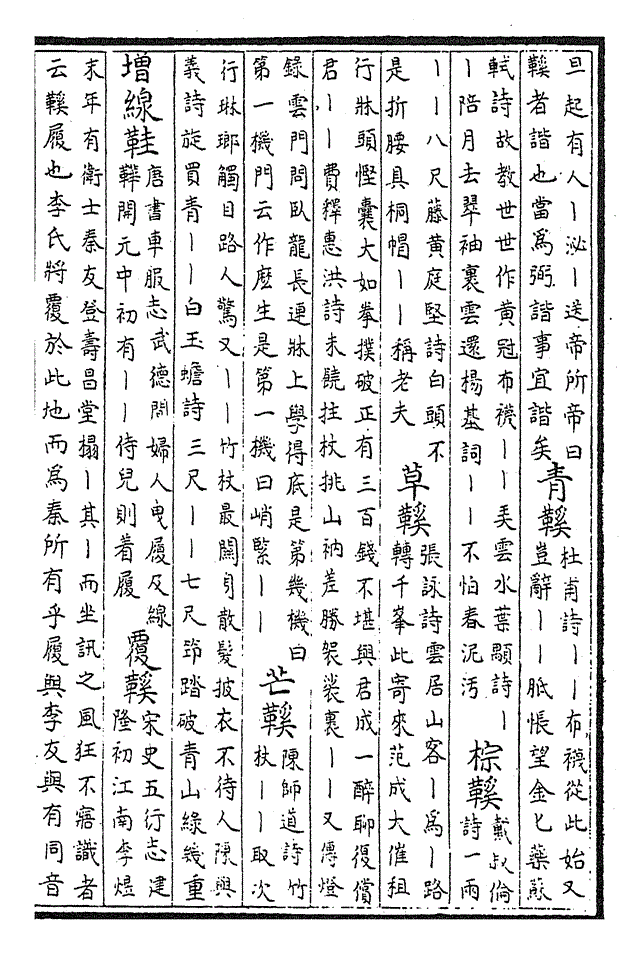 旦起有人丨泌丨送帝所帝曰
鞵者諧也當為弼諧事宜諧矣
青鞵
杜甫詩丨丨布襪從此始又
豈辭丨丨胝悵望金匕藥蘇
軾詩故教世世作黄冠布襪丨丨弄雲水葉顒詩丨
丨陪月去翠袖裏雲還楊基詞丨丨不怕春泥汚
棕鞵
戴叔倫
詩一兩
丨丨八尺藤黄庭堅詩白頭不
是折腰具桐帽丨丨稱老夫
草鞵
張詠詩雲居山客丨為丨路
轉千峯此寄來范成大催租
行牀頭慳囊大如拳撲破正有三百錢不堪與君成一醉聊復償
君丨丨費釋惠洪詩未饒拄杖挑山衲差勝袈裟裹丨丨又傳燈
錄雲門問臥龍長連牀上學得底是第幾機曰
第一機門云作麽生是第一機曰峭緊丨丨
芒鞵
陳師道詩竹
杖丨丨取次
行琳瑯觸目路人驚又丨丨竹杖最關身散髮披衣不待人陳與
義詩旋買青丨丨白玉蟾詩三尺丨丨七尺笻踏破青山綠幾重
增線鞋
唐書車服志武德間婦人曳履及線
鞾開元中初有丨丨侍兒則着履
覆鞵
宋史五行志建
隆初江南李煜
末年有衛士秦友登壽昌堂榻丨其丨而坐訊之風狂不寤識者
云鞵履也李氏將覆於此地而為秦所有乎履與李友與有同音